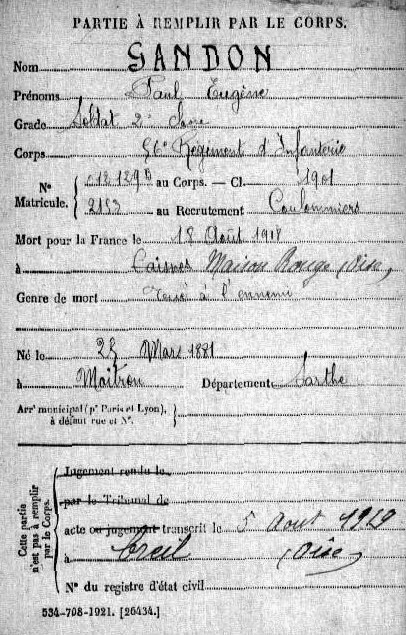 PARTIE À REMPLIR PAR LE CORPS.
Nom GANDON
Prénoms Paul Eugène
Grade Soldat 2e Classe
Corps 56e Régiment d'Infanterie
N° Matricule. 012129 au Corps. — Cl. 1901
2153 au Recrutement Coulommiers
Mort pour la France le 18 Août 1918
à Caisnes Maison Rouge (Oise)
Genre de mort Tué à l'ennemi
Né le 25 Mars 1881
à Moitron Département Sarthe
Arrt municipal (pr Paris et Lyon),
à défaut rue et N°.
Cette partie n'est pas à remplir par le Corps.
Jugement rendu le
par le Tribunal de
acte ou jugement transcrit le 5 Aout 1919
à Creil (Oise)
N° du registre d'état civil
534-708-1921. [26434.]